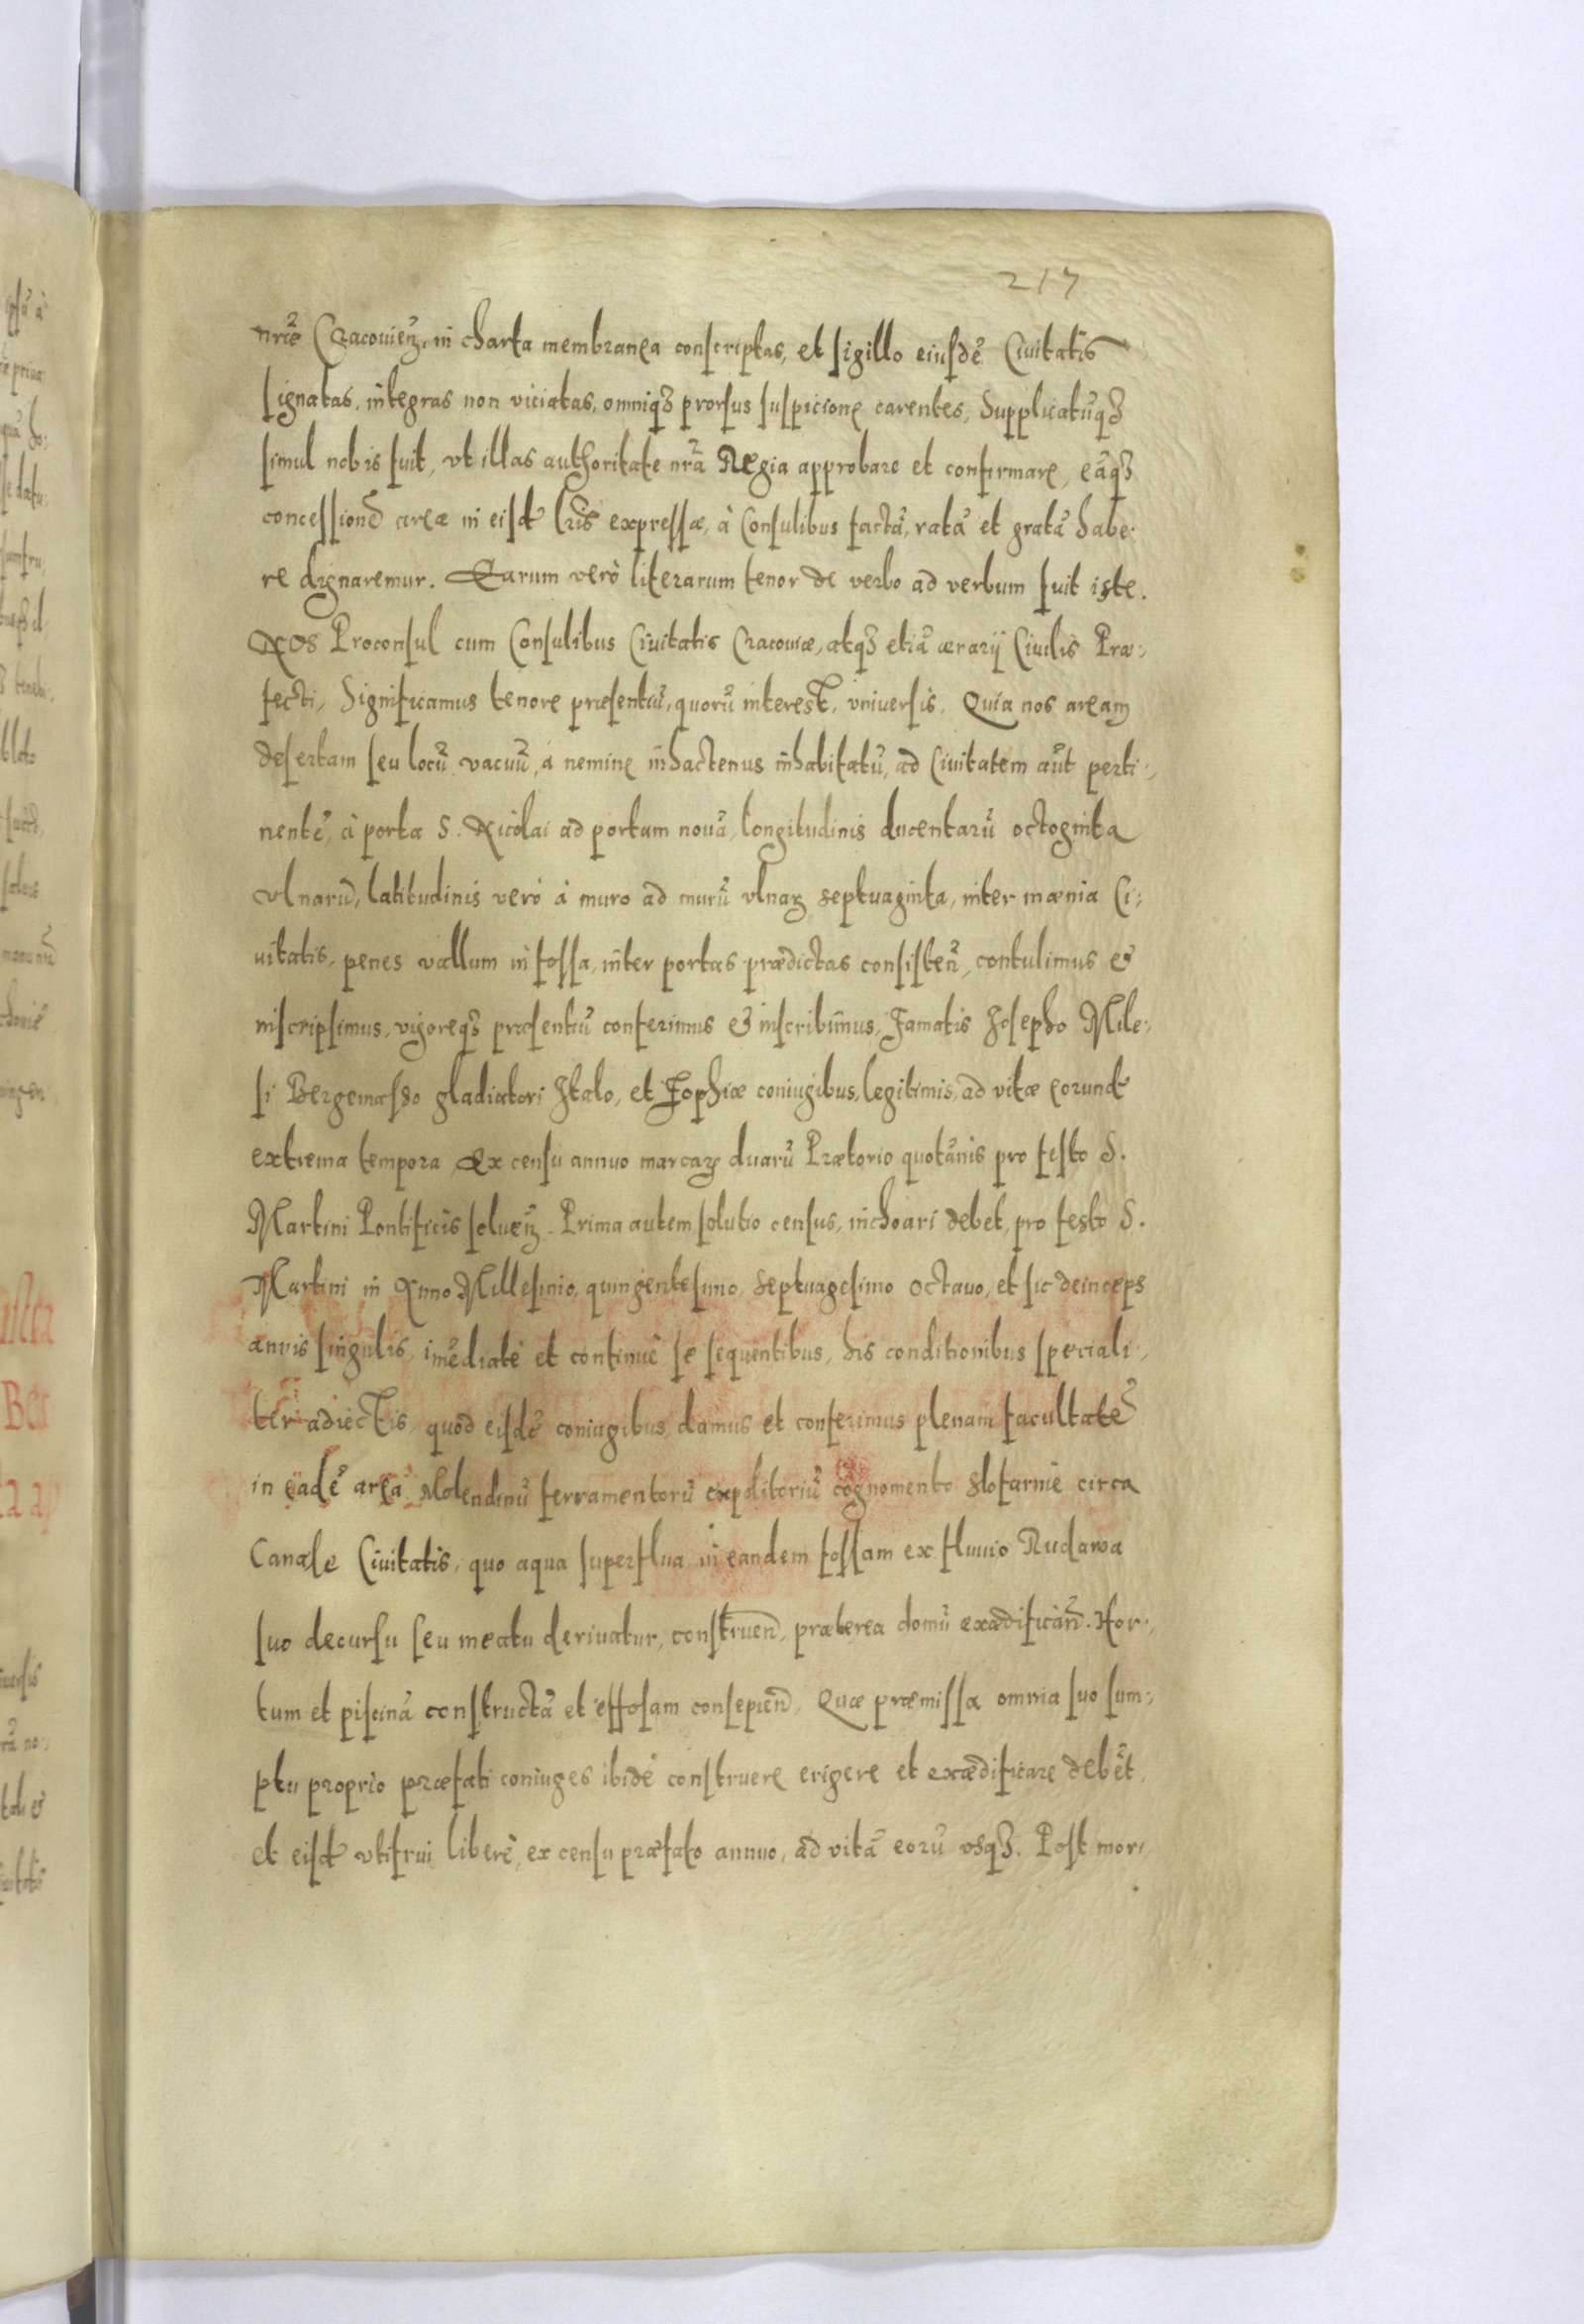 217
nr̃æ Cracovieñ. in charta membranea conscriptas, et sigillo eiusdẽ Civitatis
signatas, integras non viciatas, omniqꝫ prorsus suspicione carentes, Supplicatũqꝫ
simul nobis fuit, vt illas authoritate nr̃a Regia approbare et confirmare, eãqꝫ
concessionẽ areæ in eisdẽ lr̃is expressæ, à Consulibus factã, ratã et gratã habe:
re dignaremur. Earum verò literarum tenor de verbo ad verbum fuit iste.
Nos Proconsul cum Consulibus Civitatis Cracoviæ, atqꝫ etiã ærarij Civilis Præ:
fecti, Significamus tenore præsentiũ, quorũ interest, vniversis. Quia nos aream
desertam seu locũ vacuũ, à nemine inhactenus inhabitatũ, ad Civitatem aũt perti:
nentẽ, à porta S. Nicolai ad portam novã, longitudinis ducentarũ octoginta
vlnarũ, latitudinis verò à muro ad murũ vlnaꝝ septuaginta, inter mænia Ci:
uitatis, penes vallum in fossa, inter portas prædictas consisteñ, contulimus &
inscripsimus, vigoreqꝫ præsentiũ conferimus & inscribimus, Famatis Josepho Mile:
si Bergemasso gladiatori Italo, et Zophiæ coniugibus, legitimis, ad vitæ eorundẽ
extrema tempora, Ex censu annuo marcaꝝ duarũ Prætorio quotãnis pro festo S.
Martini Pontificis solueñ. Prima autem solutio census, inchoari debet, pro festo S.
Martini in Anno Millesimo, quingentesimo, Septuagesimo octauo, et sic deinceps
annis singulis, imẽdiatè et continuè se sequentibus, his conditionibus speciali:
ter adiectis, quòd eisdẽ coniugibus, damus et conferimus plenam facultatẽ
in eadẽ area Molendinũ ferramentorũ expolitoriũ cognomento slofarnie circa
Canale Civitatis, quo aqua superflua in eandem fossam ex fluuio Rudawa
suo decursu seu meatu derivatur, construeñ, præterea domũ exædificañ. Hor:
tum et piscinã constructã et effosam consepieñ, Quæ præmissa omnia suo sum:
ptu proprio præfati coniuges ibidẽ construere erigere et exædificare debẽt,
et eisdẽ vtifrui liberè, ex censu præfato annuo, ad vitã eorũ vsqꝫ. Post mor: